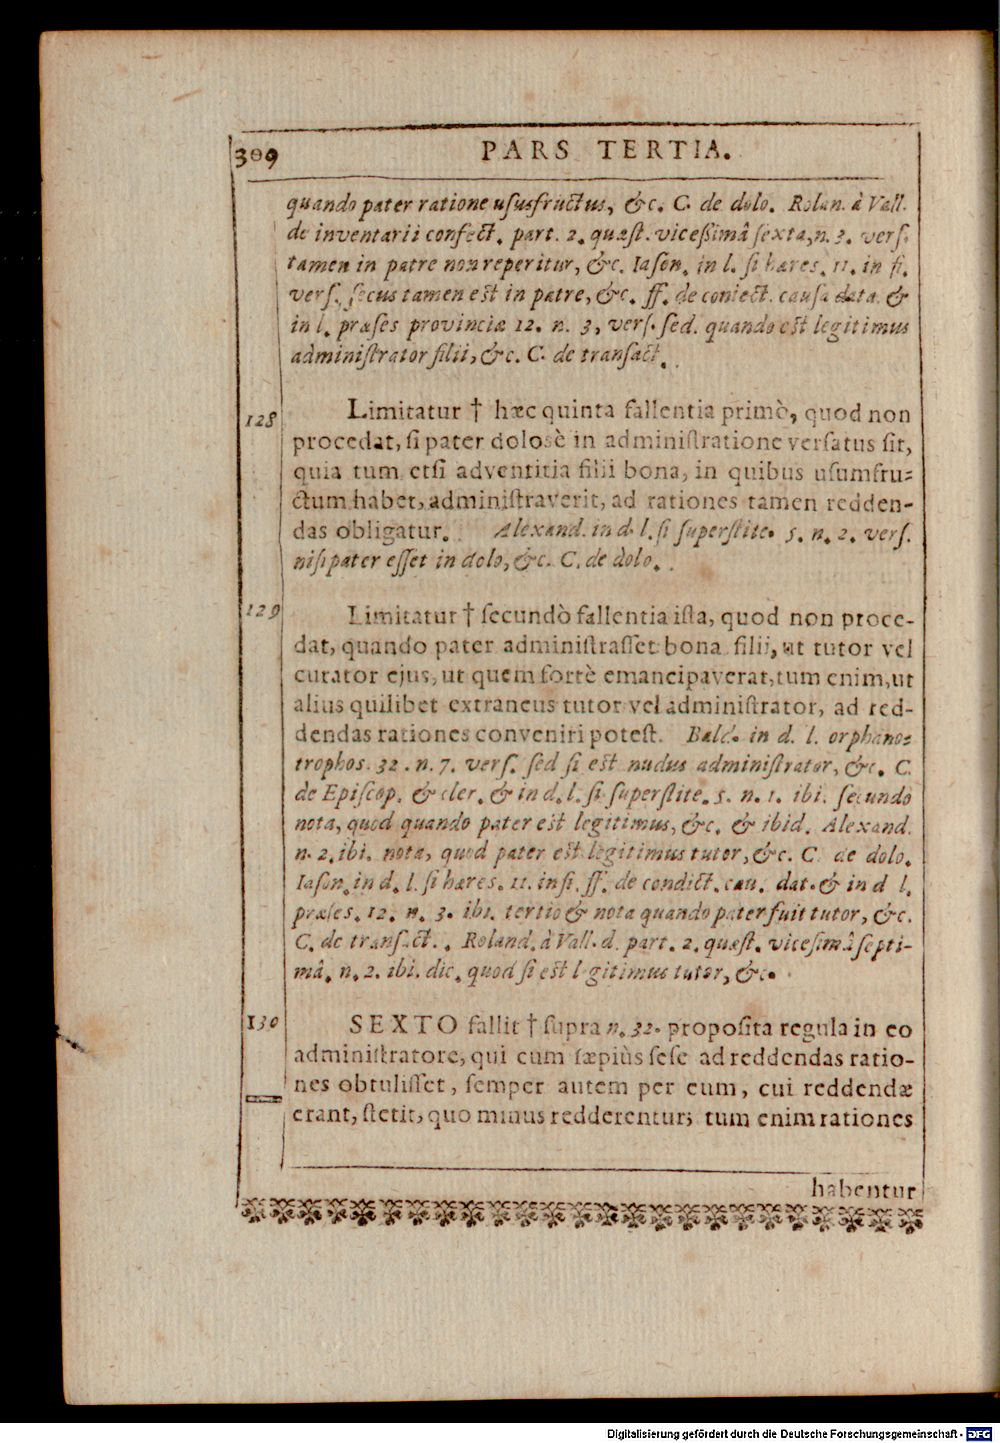 309 PARS TERTIA.
quando pater ratione ususfructus, &c. C. de dolo. Rolan. à Vall.
de inventarii confect. part. 2. quæst. vicessimâ sexta, n. 3. vers.
tamen in patre non reperitur, &c. Iason. in l. si hæres. 11. in fi.
vers. secus tamen est in patre, &c. ff. de coniect. causa data. &
in l. præses provinciæ 12. n. 3, vers. sed. quando est legitimus
administrator filii, &c. C. de transact.
128 Limitatur † hæc quinta fallentia primò, quod non
procedat, si pater dolosè in administratione versatus sit,
quia tum etsi adventitia filii bona, in quibus usumfru-
ctum habet, administraverit, ad rationes tamen redden-
das obligatur. Alexand. in d. l. si superstite. 5. n. 2. vers.
nisi pater esset in dolo, &c. C. de dolo.
129 Limitatur † secundò fallentia ista, quod non proce-
dat, quando pater administrasset bona filii, ut tutor vel
curator ejus, ut quem fortè emancipaverat, tum enim, ut
alius quilibet extraneus tutor vel administrator, ad red-
dendas rationes conveniri potest. Bald. in d. l. orphano-
trophos. 32. n. 7. vers. sed si est nudus administrator, &c. C.
de Episcop. & cler. & in d. l. si superstite. 5. n. 1. ibi. secundo
nota, quod quando pater est legitimus, &c. & ibid. Alexand.
n. 2. ibi. nota, quod pater est legitimus tutor, &c. C. de dolo.
Iason. in d. l. si hæres. 11. in fi. ff. de condict. cau. dat. & in d l.
præses. 12. n. 3. ibi. tertio & nota quando pater fuit tutor, &c.
C. de transact. Roland. à Vall. d. part. 2. quæst. vicesimâ septi-
mâ. n. 2. ibi. dic. quod si est l gitimus tutor, &c.
130 SEXTO fallit † supra n. 32. proposita regula in eo
administratore, qui cum sæpiùs sese ad reddendas ratio-
nes obtulisset, semper autem per eum, cui reddendæ
erant, stetit, quo minus redderentur; tum enim rationes
habentur
Digitalisierung gefördert durch die Deutsche Forschungsgemeinschaft - DFG